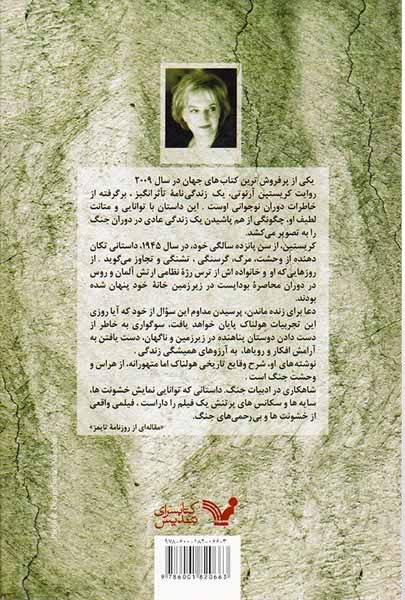 یکی از پرفروش‌ترین کتاب‌های جهان در سال ۲۰۰۹
روایت کریستین آرنوتی، یک زندگی‌نامهٔ تأثرانگیز، برگرفته از
خاطرات دوران نوجوانی اوست. این داستان با توانایی و متانت
لطیف او، چگونگی از هم پاشیدن یک زندگی عادی در دوران جنگ
را به تصویر می‌کشد.
کریستین، از سن پانزده سالگی خود، در سال ۱۹۴۵، داستانی تکان
دهنده از وحشت، مرگ، گرسنگی، تشنگی و تجاوز می‌گوید. از
روزهایی‌که او و خانواده اش از ترس رژهٔ نظامی ارتش آلمان و روس
در دوران محاصرهٔ بوداپست در زیرزمین خانهٔ خود پنهان شده
بودند.
دعا برای زنده ماندن، پرسیدن مداوم این سؤال از خود که آیا روزی
این تجربیات هولناک پایان خواهد یافت، سوگواری به خاطر از
دست دادن دوستان پناهنده در زیرزمین و ناگهان، دست یافتن به
آرامش افکار و رویاها، به آرزوهای همیشگی زندگی.
نوشته‌های او، شرح وقایع تاریخی هولناک اما متهورانه، از هراس و
وحشت جنگ است.
شاهکاری در ادبیات جنگ. داستانی که توانایی نمایش خشونت ها،
سایه ها و سکانس های پرتنش یک فیلم را داراست، فیلمی واقعی
از خشونت ها و بی‌رحمی‌های جنگ.
«مقاله‌ای از روزنامهٔ تایمز»
کتابسرای
تندیس
۹۷۸-۶۰۰-۱۸۲-۰۶۶-۳
9 786001 820663